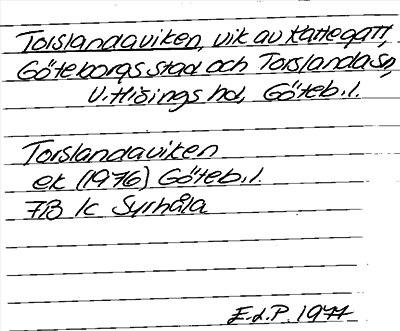 Torslandaviken, vik av Kattegatt,
Göteborgs stad och Torslanda sn,
V. Hisings hd, Göteb. l.
Torslandaviken
ek (1976) Göteb. l.
7B 1c Syrhåla
E. d. P. 1977